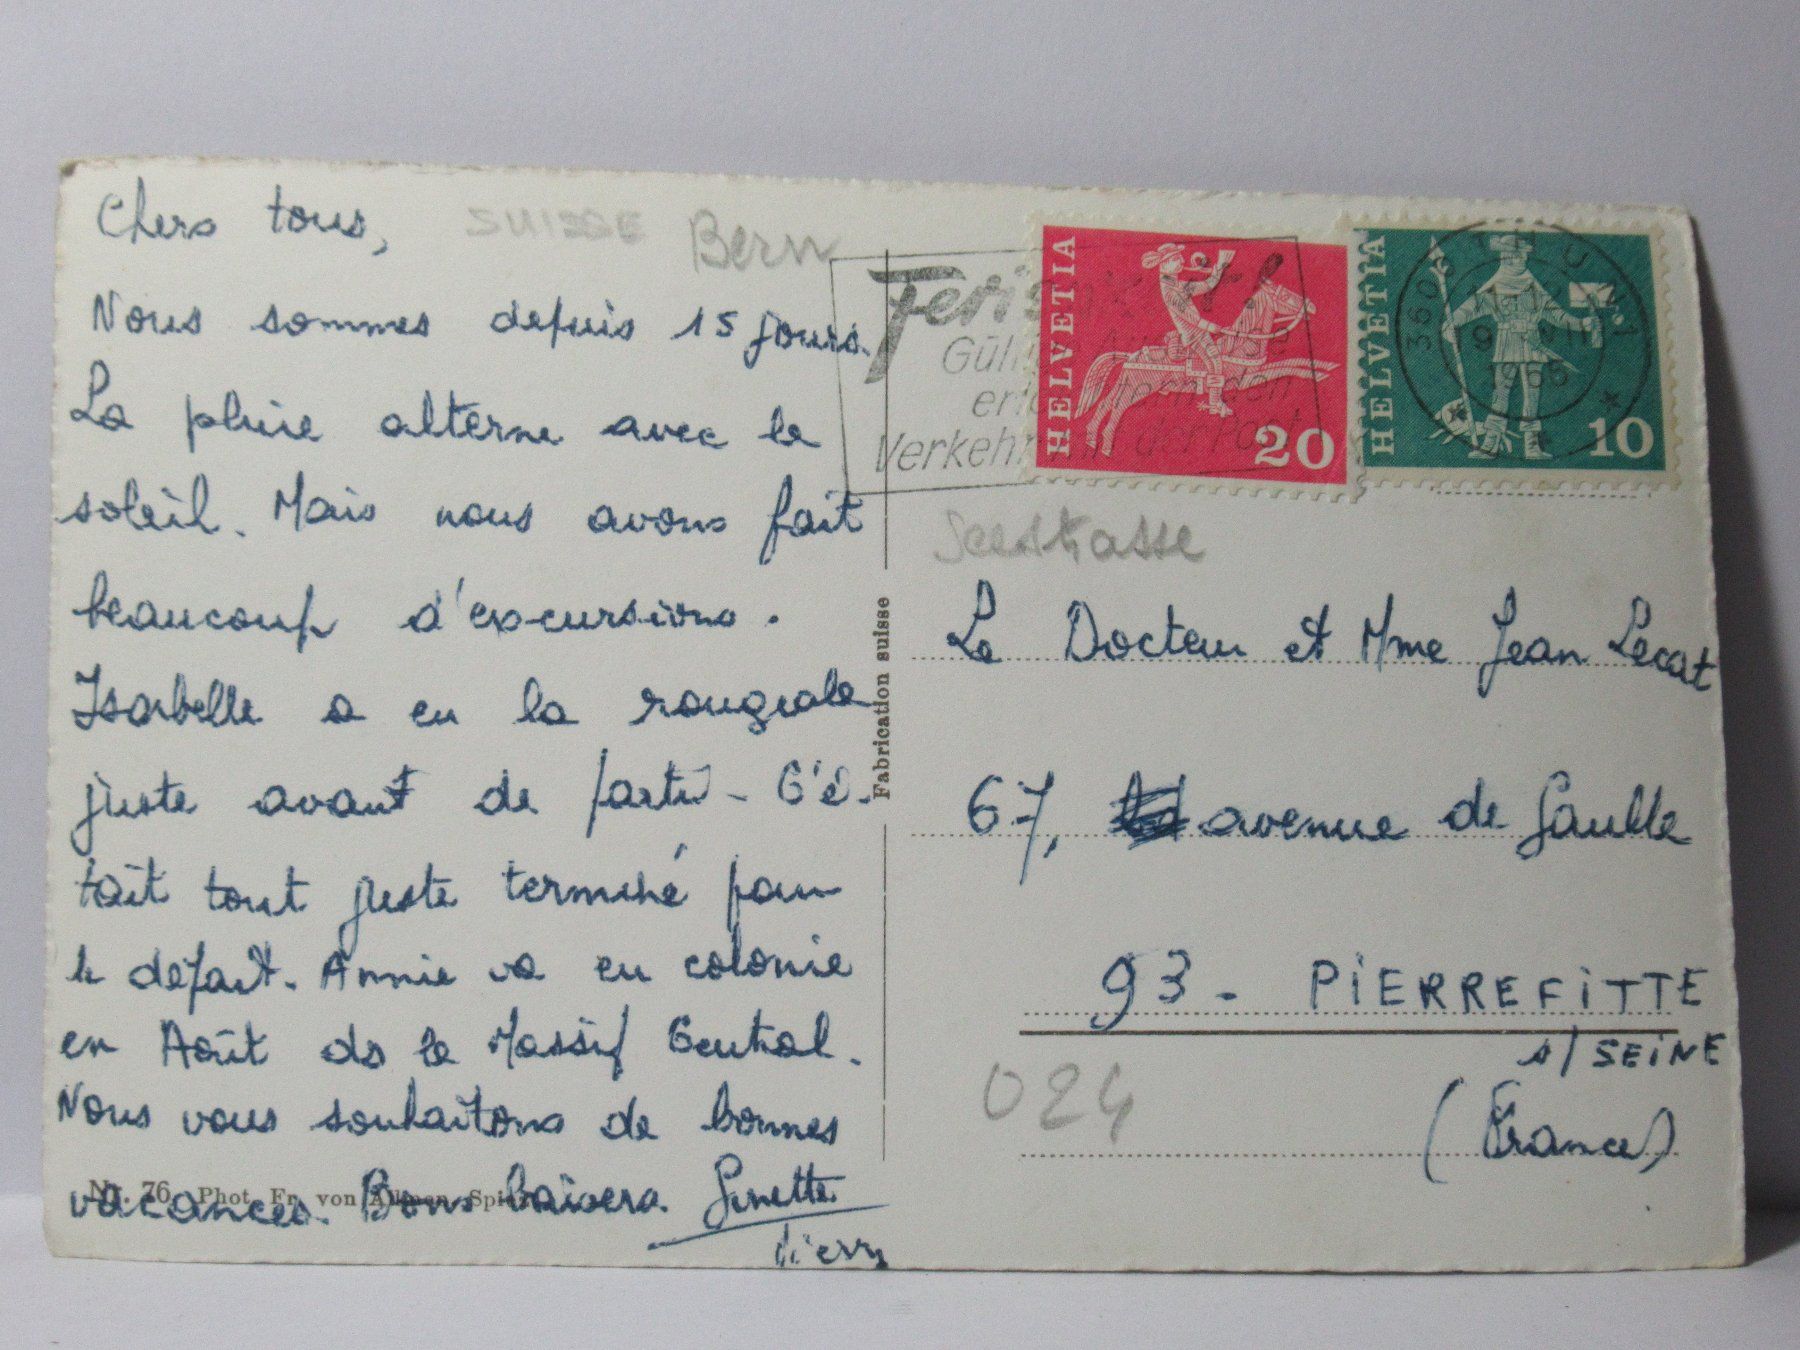 Chers tous,
SUISSE Bern
Nous sommes depuis 15 jours.
La pluie alterne avec le
soleil. Mais nous avons fait
beaucoup d'excursions.
Isabelle a eu la rougeole
juste avant de partir - C'é-
tait tout juste terminé pour
le départ. Annie va en colonie
en Août ds le Massif Central.
Nous vous souhaitons de bonnes
vacances. Bons baisers. Ginette
Pierre
Nr. 76 Phot. Fr. von Allmen, Spiez
Fabrication suisse
Gültige
Verkehr mit der Post
HELVETIA
20
HELVETIA
10
3605 THUN 1
1965
Seestrasse
Le Docteur et Mme Jean Lecat
67, avenue de Gaulle
93 - PIERREFITTE
s/ SEINE
(France)
024